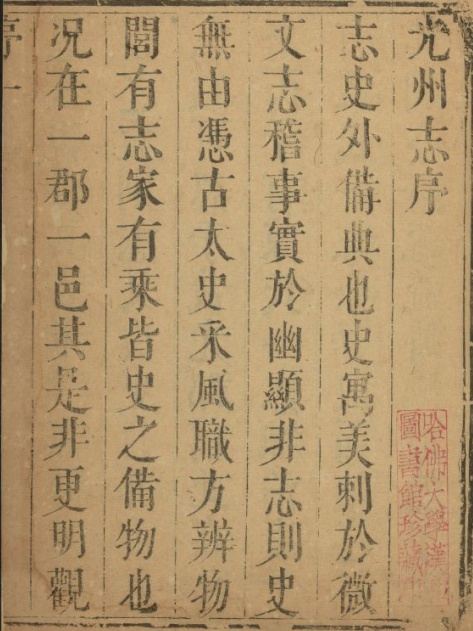 光州志序
志史外備典也史寓美刺於微
文志稽事實於幽顯非志則史
無由憑古太史采風職方辨物
閭有志家有乘皆史之備物也
况在一郡一邑其是非更明觀
序一
哈佛大學漢
圖書館珍藏